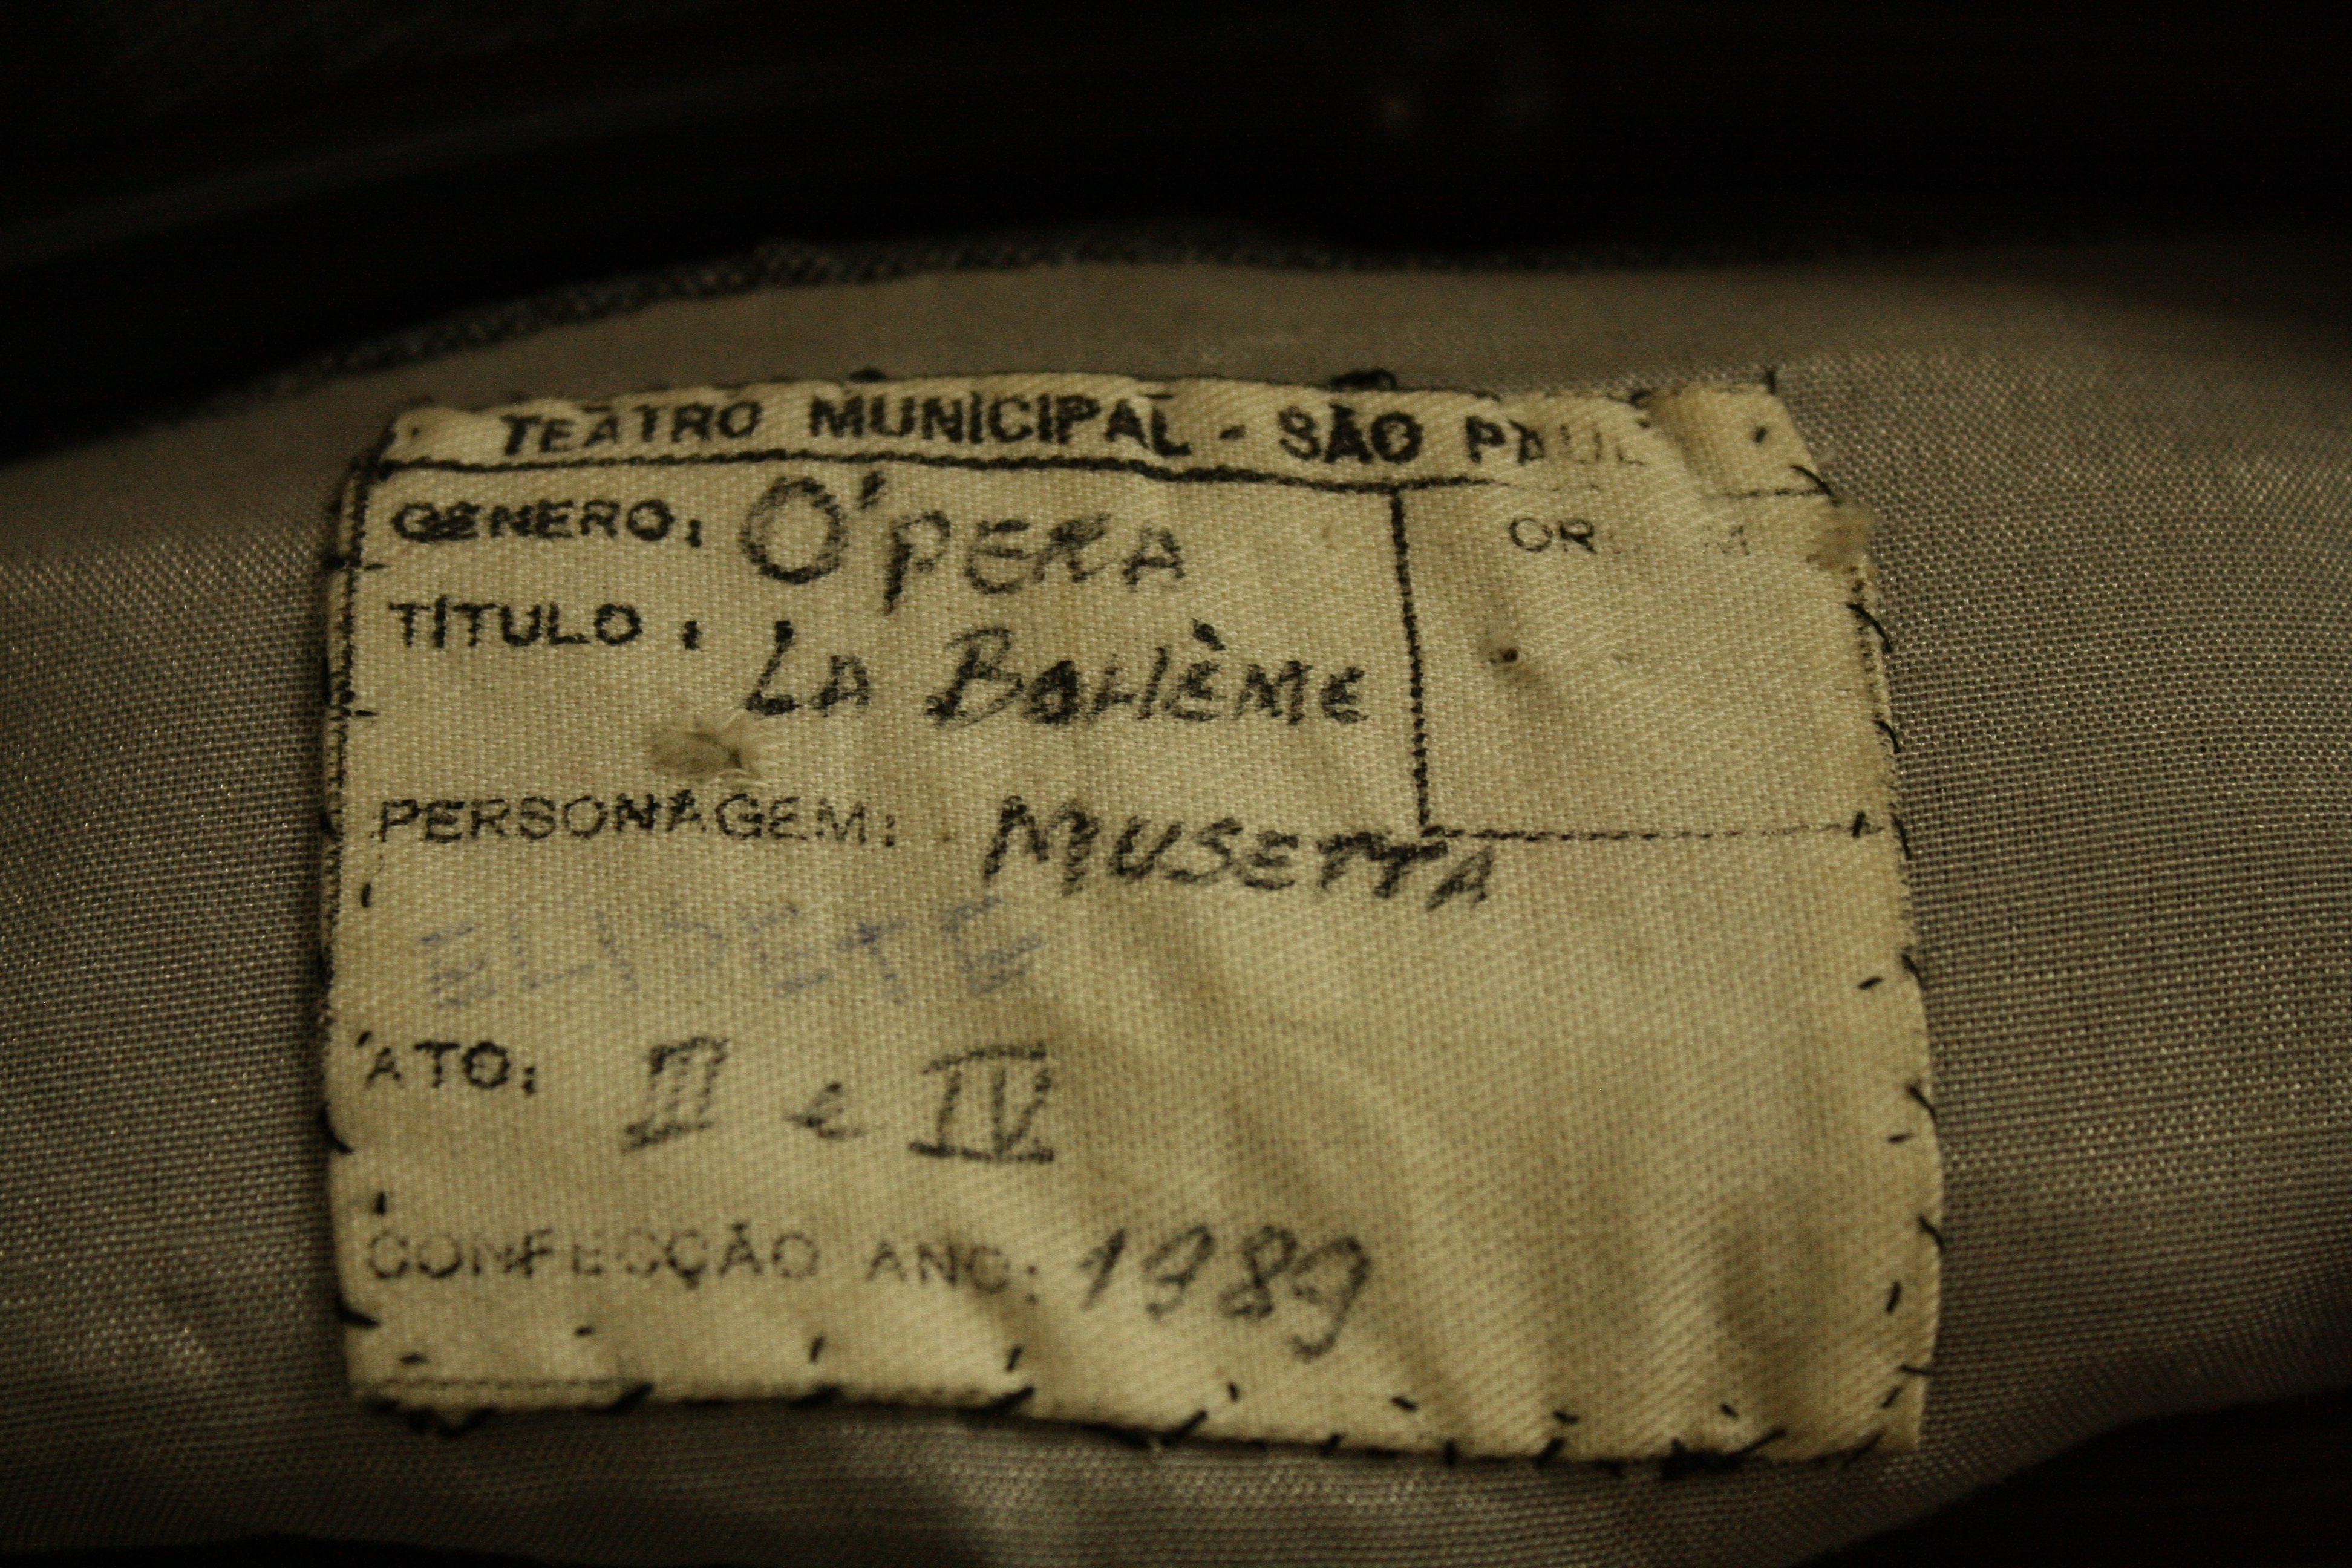 TEATRO MUNICIPAL - SÃO PAUL
GÊNERO: ÓPERA
TÍTULO: LA BOHÈME
PERSONAGEM: MUSETTA
ATO: III e IV
CONFECÇÃO ANO: 1989